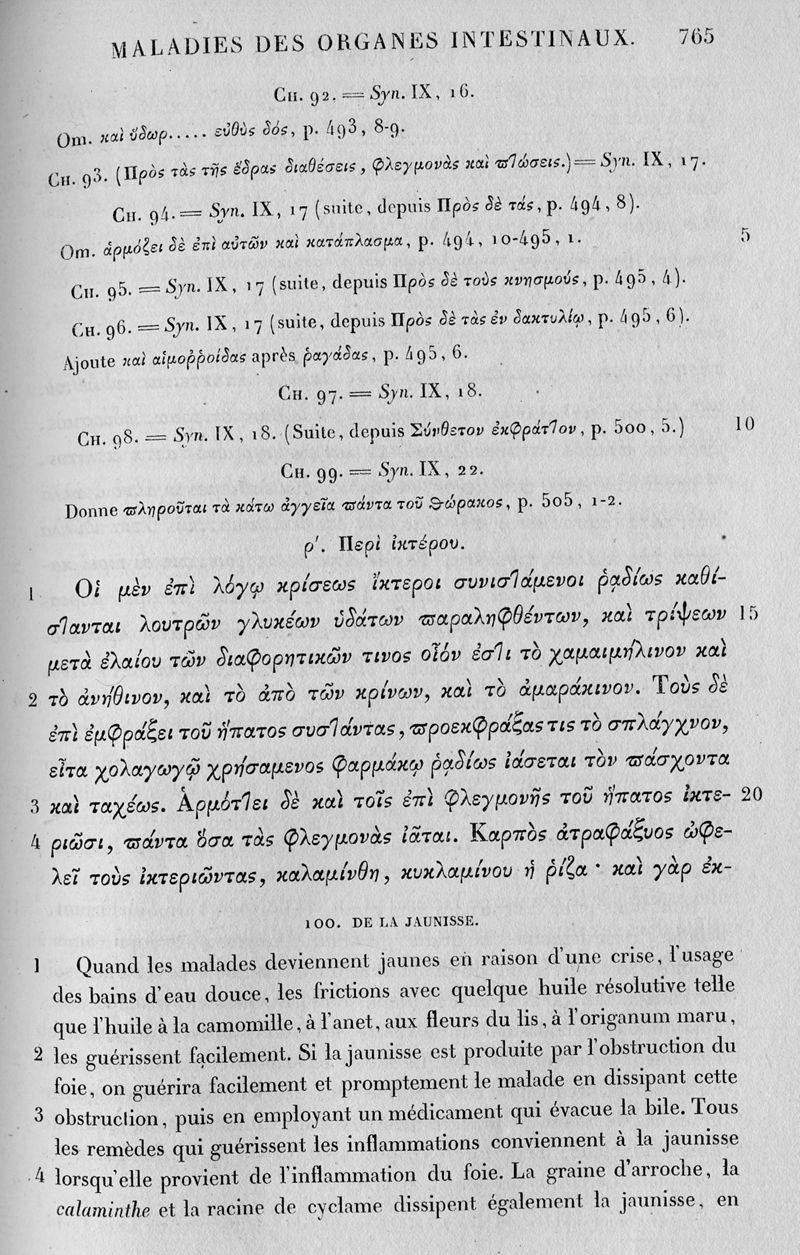 MALADIES DES ORGANES INTESTINAUX. 765
Ch. 92. = Syn. IX, 16.
Om. καὶ ὕδωρ..... εὐθὺς δός, p. 493, 8-9.
Ch. 93. (Πρὸς τὰς τῆς ἕδρας διαθέσεις, φλεγμονὰς καὶ πτώσεις.) = Syn. IX, 17.
Ch. 94. = Syn. IX, 17 (suite, depuis Πρὸς δὲ τάς, p. 494, 8).
Om. ἁρμόζει δὲ ἐπὶ αὐτῶν καὶ κατάπλασμα, p. 494, 10-495, 1. 5
Ch. 95. = Syn. IX, 17 (suite, depuis Πρὸς δὲ τοὺς κνησμούς, p. 495, 4).
Ch. 96. = Syn. IX, 17 (suite, depuis Πρὸς δὲ τὰς ἐν δακτυλίῳ, p. 495, 6).
Ajoute καὶ αἱμοῤῥοίδας après ῥαγάδας, p. 495, 6.
Ch. 97. = Syn. IX, 18.
Ch. 98. = Syn. IX, 18. (Suite, depuis Σύνθετον ἐκφράττον, p. 500, 5.) 10
Ch. 99. = Syn. IX, 22.
Donne πληροῦται τὰ κάτω ἀγγεῖα πάντα τοῦ θώρακος, p. 505, 1-2.
ρʹ. Περὶ ἰκτέρου.
1 Οἱ μὲν ἐπὶ λόγῳ κρίσεως ἴκτεροι συνιστάμενοι ῥᾳδίως καθί-
στανται λουτρῶν γλυκέων ὑδάτων παραληφθέντων, καὶ τρίψεων 15
μετὰ ἐλαίου τῶν διαφορητικῶν τινος οἷόν ἐστι τὸ χαμαιμήλινον καὶ
2 τὸ ἀνήθινον, καὶ τὸ ἀπὸ τῶν κρίνων, καὶ τὸ ἀμαράκινον. Τοὺς δὲ
ἐπὶ ἐμφράξει τοῦ ἥπατος συστάντας, προεκφράξας τις τὸ σπλάγχνον,
εἶτα χολαγωγῷ χρήσαμενος φαρμάκῳ ῥᾳδίως ἰάσεται τὸν πάσχοντα
3 καὶ ταχέως. Ἁρμόττει δὲ καὶ τοῖς ἐπὶ φλεγμονῆς τοῦ ἥπατος ἰκτε- 20
4 ριῶσι, πάντα ὅσα τὰς φλεγμονὰς ἰᾶται. Καρπὸς ἀτραφάξυος ὠφε-
λεῖ τοὺς ἰκτεριῶντας, καλαμίνθη, κυκλαμίνου ἡ ῥίζα· καὶ γὰρ ἐκ-
100. DE LA JAUNISSE.
1 Quand les malades deviennent jaunes en raison d'une crise, l'usage
des bains d'eau douce, les frictions avec quelque huile résolutive telle
que l'huile à la camomille, à l'anet, aux fleurs du lis, à l'origanum maru,
2 les guérissent facilement. Si la jaunisse est produite par l'obstruction du
foie, on guérira facilement et promptement le malade en dissipant cette
3 obstruction, puis en employant un médicament qui évacue la bile. Tous
les remèdes qui guérissent les inflammations conviennent à la jaunisse
4 lorsqu'elle provient de l'inflammation du foie. La graine d'arroche, la
calaminthe et la racine de cyclame dissipent également la jaunisse, en